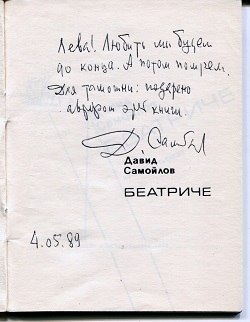 Лева! Любить мы будем
до конца. А потом помрем.
Для таможни: подарено
автором этой книги.
Д. Самойлов
Давид
Самойлов
БЕАТРИЧЕ
4.05.89